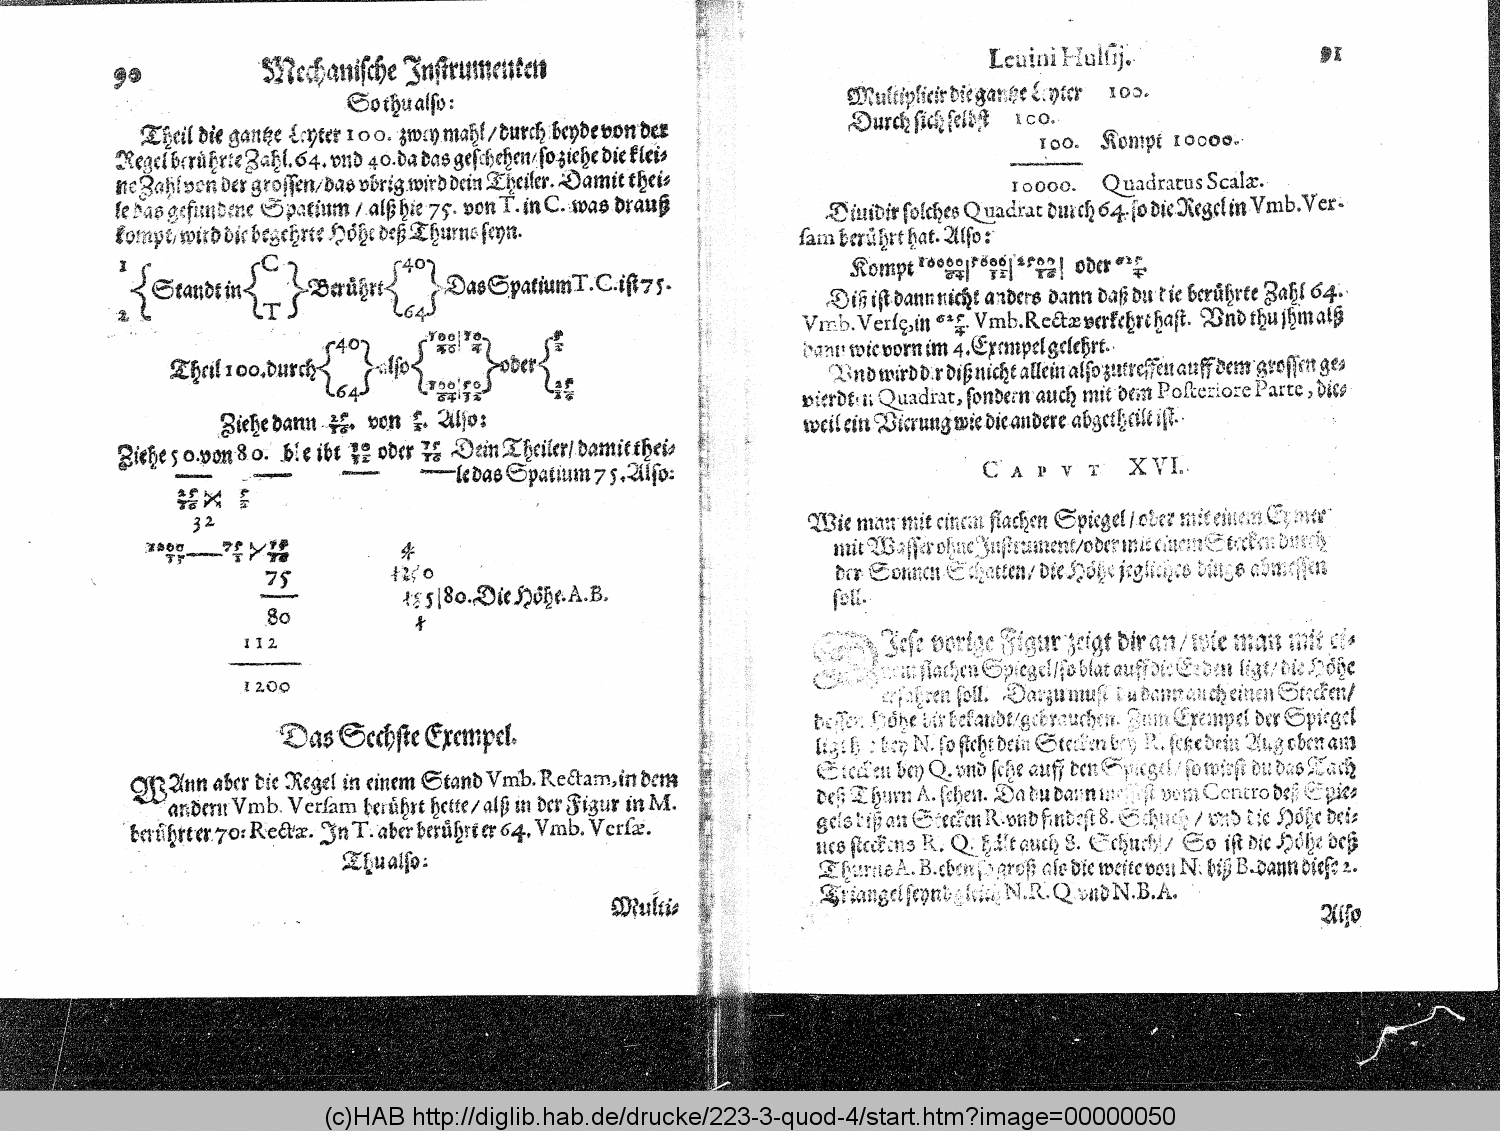 90 Mechanische Instrumenten
So thu also:
Theil die gantze Leyter 100. zwey mahl / durch beyde von der
Regel berührte Zahl. 64. vnd 40. da das geschehen / so ziehe die klei-
ne Zahl von der grossen / das vbrig wird dein Theiler. Damit thei-
le das gefundene Spatium / alß hie 75. von T. in C. was drauß
kompt / wird die begehrte Höhe deß Thurns seyn.
1 C 40
Standt in Berührt Das Spatium T. C. ist 75.
2 T 64
40 100/40 | 10/4 5/2
Theil 100. durch also oder
64 100/64 | 50/32 25/16
Ziehe dann 25/16. von 5/2. Also:
Ziehe 50. von 80. bleibt 30/32 oder 15/16 Dein Theiler / damit thei-
le das Spatium 75. Also:
25/16 5/2
32
1200/15 75/1 15/16
75
80
112
1200
4
1250
155 | 80. Die Höhe. A. B.
4
Das Sechste Exempel.
WAnn aber die Regel in einem Stand Vmb. Rectam, in dem
andern Vmb. Versam berührt hette / alß in der Figur in M.
berührt er 70: Rectæ. In T. aber berührt er 64. Vmb. Versæ.
Thu also:
Multi-
Leuini Hulsij. 91
Multiplicir die gantze Leyter 100.
Durch sich selbst 100.
100. Kompt 10000.
10000. Quadratus Scalæ.
Diuidir solches Quadrat durch 64. so die Regel in Vmb. Ver-
sam berührt hat. Also:
Kompt 10000/64 | 5000/32 | 2500/16 | oder 625/4.
Diß ist dann nicht anders dann daß du die berührte Zahl 64.
Vmb. Versę, in 625/4. Vmb. Rectæ verkehrt hast. Vnd thu jhm alß
dann wie vorn im 4. Exempel gelehrt.
Vnd wird dir diß nicht allein also zutreffen auff dem grossen ge-
vierdten Quadrat, sondern auch mit dem Posteriore Parte, die-
weil ein Vierung wie die andere abgetheilt ist.
CAPVT XVI.
Wie man mit einem flachen Spiegel / oder mit einem Eymer
mit Wasser ohne Instrument / oder mit einem Stecken durch
der Sonnen Schatten / die Höhe jegliches dings abmessen
soll.
DIese vorige Figur zeigt dir an / wie man mit ei-
nem flachen Spiegel / so blat auff die Erden ligt / die Höhe
erfahren soll. Darzu must du dann auch einen Stecken /
dessen Höhe dir bekandt / gebrauchen. Zum Exempel der Spiegel
ligt hie bey N. so steht dein Stecken bey R. setze dein Aug oben am
Stecken bey Q. vnd sehe auff den Spiegel / so wirst du das Tach
deß Thurn A. sehen. Da du dann missest vom Centro deß Spie-
gels biß an Stecken R. vnd findest 8. Schuch / vnd die Höhe dei-
nes steckens R. Q. hält auch 8. Schuch / So ist die Höhe deß
Thurns A. B. eben so groß als die weite von N. biß B. dann diese 2.
Triangel seynd gleich N. R. Q. vnd N. B. A.
Also
(c)HAB http://diglib.hab.de/drucke/223-3-quod-4/start.htm?image=00000050